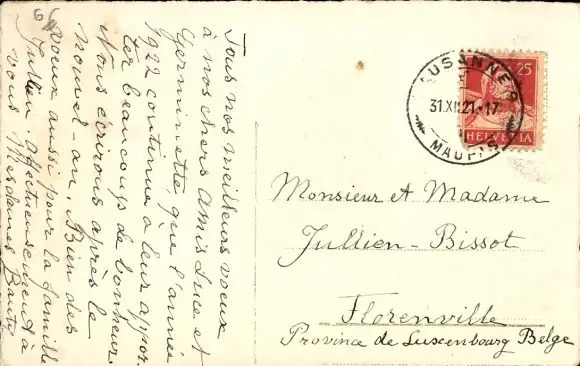 Tous nos meilleurs voeux
à nos chers amis Luc et
Germinette, que l'année
1922 continue à leur appor-
ter beaucoup de bonheur.
Nous écrirons après le
nouvel-an. Bien des
voeux aussi pour la famille
Jullien. affectueusement à
vous Mesdames
LAUSANNE
31.XII.21.-17
MAUPAS
25
HELVETIA
Monsieur et Madame
Jullien-Bissot
Florenville
Province de Luxembourg Belge